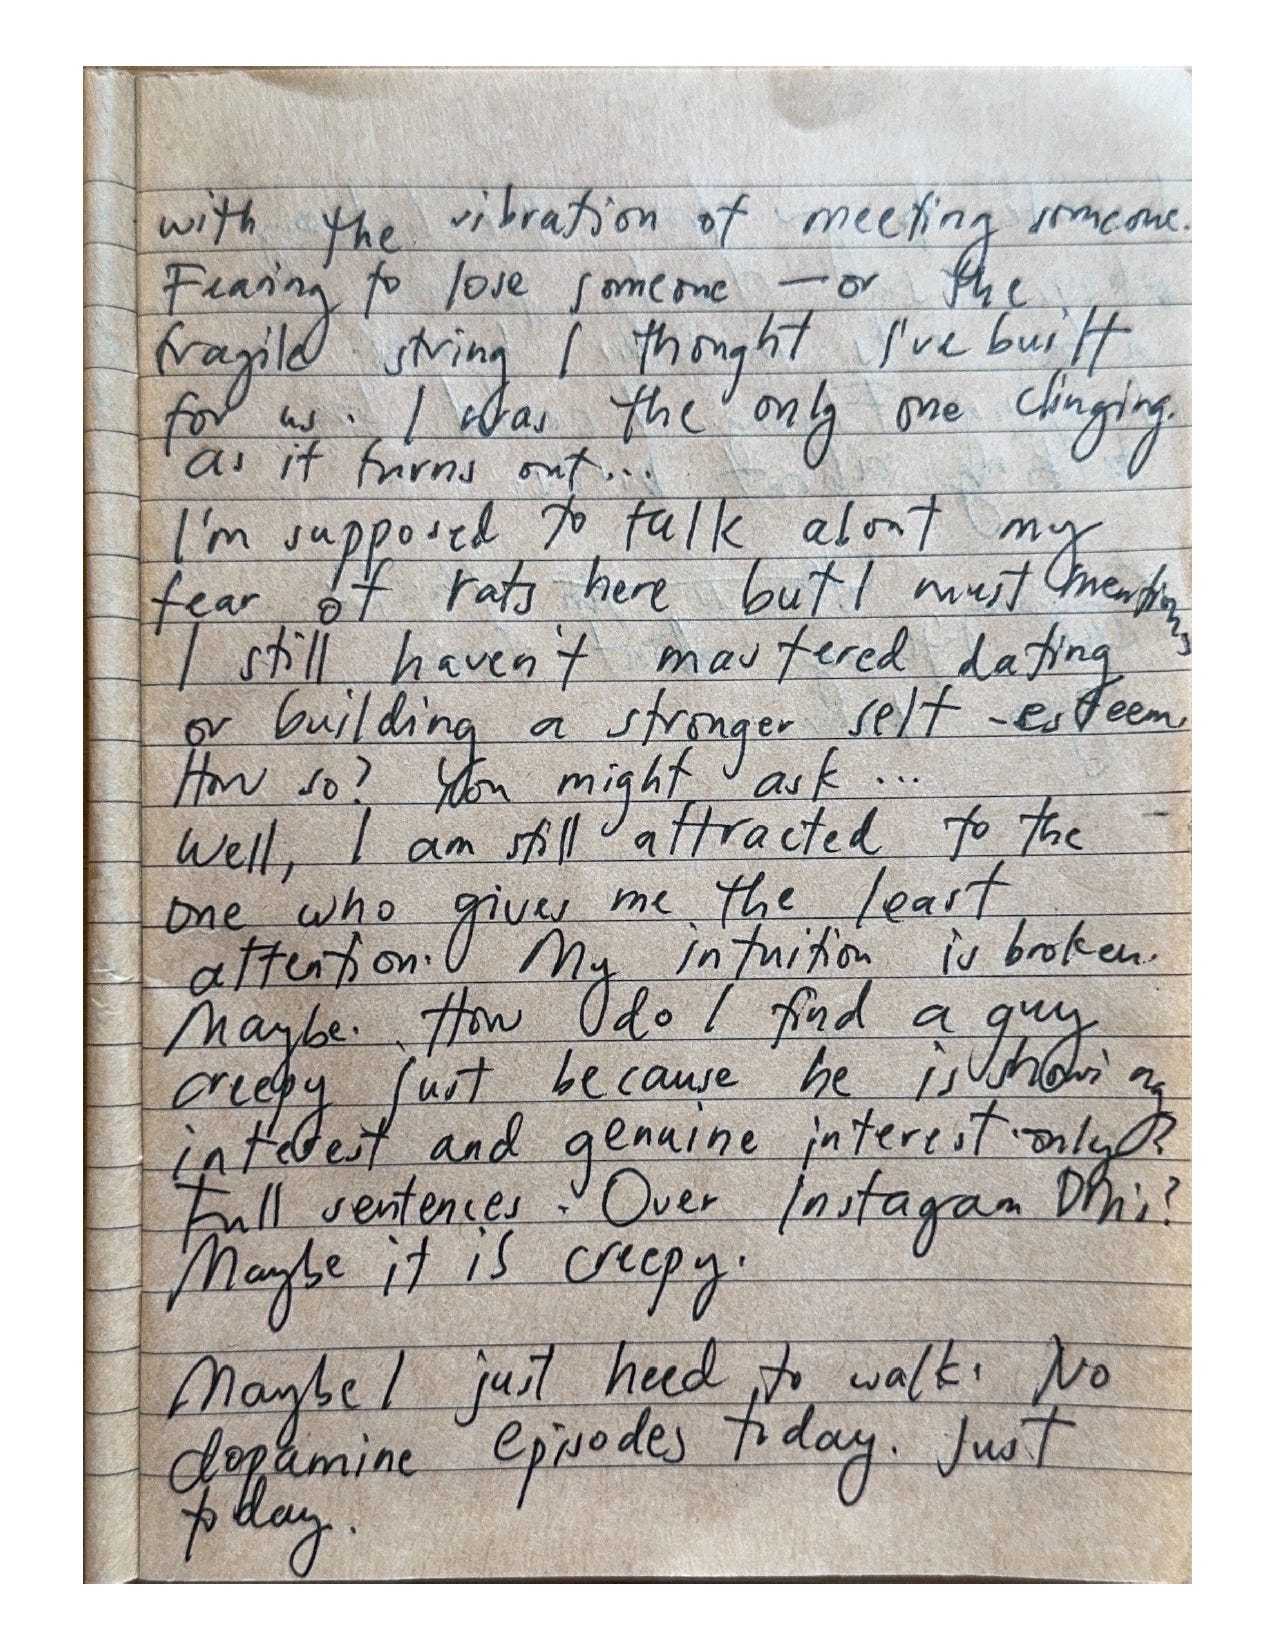 with the vibration of meeting someone.
Fearing to lose someone — or the
fragile string I thought I've built
for us. I was the only one clinging.
as it turns out...
I'm supposed to talk about my
fear of rats here but I must mention
I still haven't mastered dating
or building a stronger self-esteem.
How so? You might ask...
Well, I am still attracted to the
one who gives me the least
attention. My intuition is broken.
Maybe. How do I find a guy
creepy just because he is showing
interest and genuine interest only?
Full sentences. Over Instagram DMs?
Maybe it is creepy.
Maybe I just need to walk. No
dopamine episodes today. Just
today.